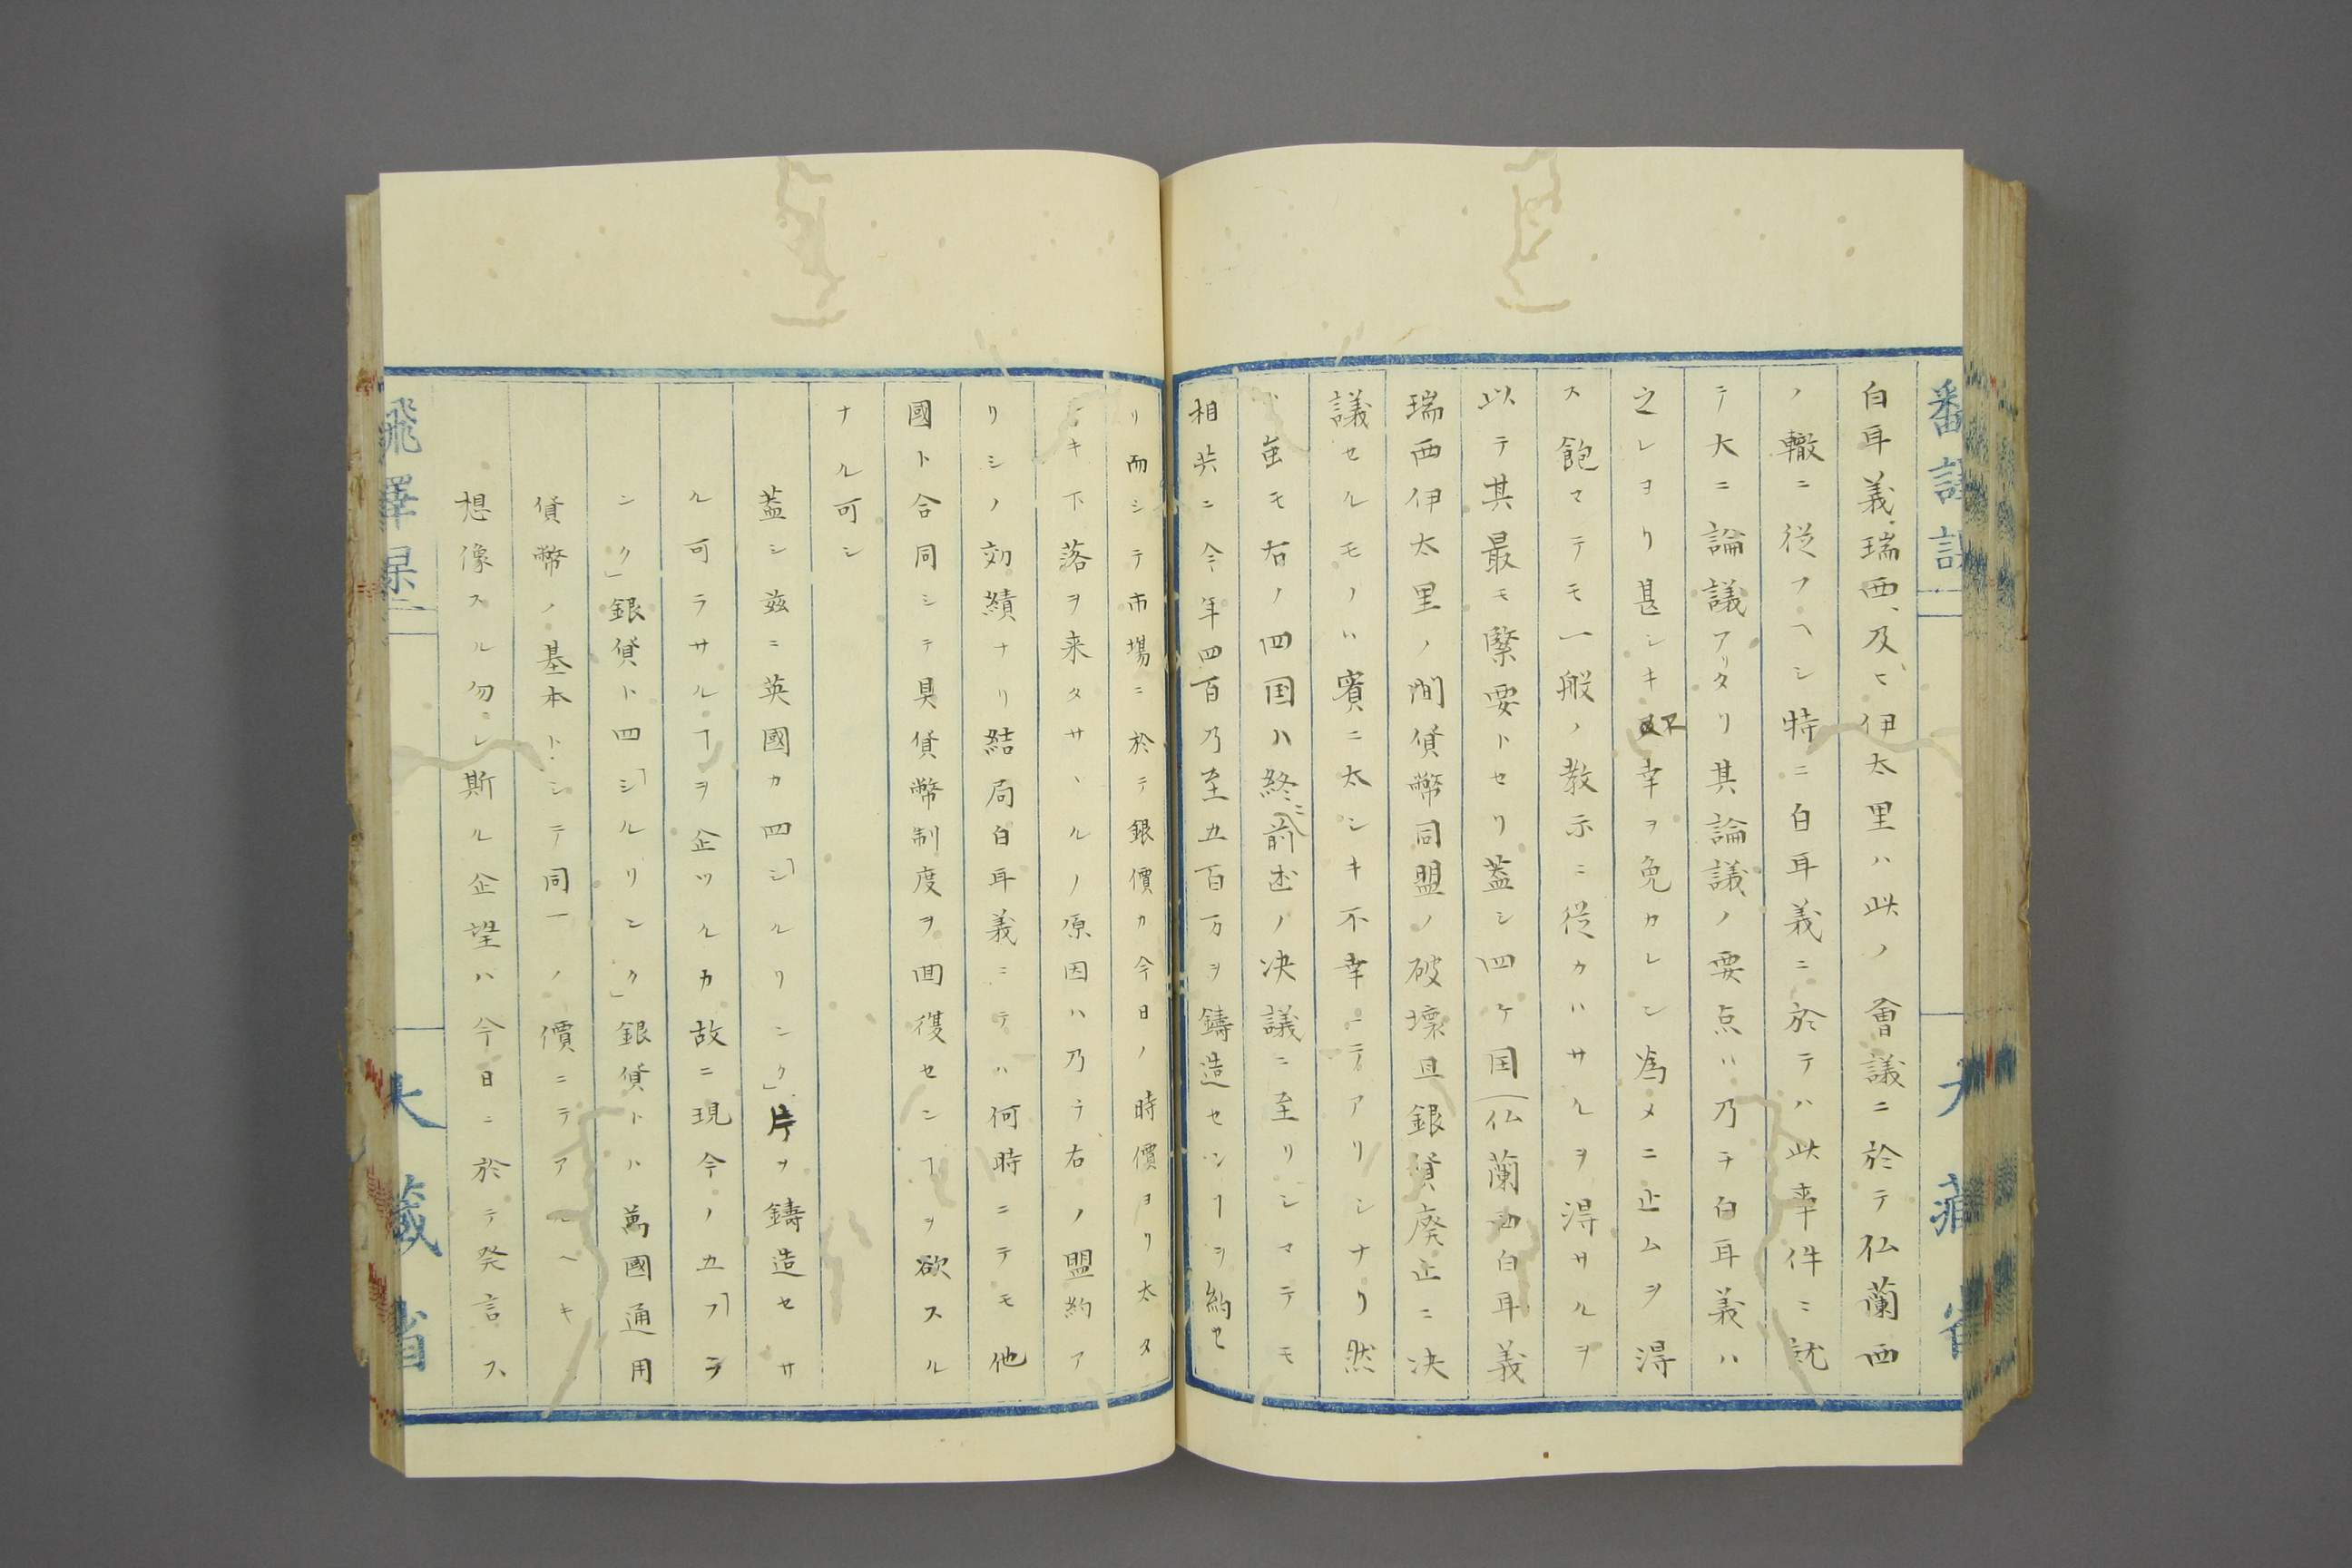 白耳義瑞西、及ヒ伊太里ハ此ノ會議ニ於テ仏蘭西
ノ轍ニ従フヘシ特ニ白耳義ニ於テハ此率件ニ就
テ大ニ論議アリタリ其論議ノ要点ハ乃チ白耳義ハ
之レヨリ甚シキ不幸ヲ免カレン為メニ止ムヲ得
ス飽マテモ一般ノ教示ニ従カハサルヲ得サルヲ
以テ其最モ緊要トセリ蓋シ四ケ国(仏蘭西白耳義
瑞西伊太里ノ間貨幣同盟ノ破壊且銀貨廃止ニ决
議セルモノハ實ニ太シキ不幸ニテアリシナリ然
モ右ノ四国ハ終ニ前述ノ决議ニ至リシマテモ
相共ニ今年四百乃至五百万ヲ鋳造センヿヲ約セ
リ而シテ市場ニ於テ銀價カ今日ノ時價ヨリ太タ
シキ下落ヲ来タサヽルノ原因ハ乃チ右ノ盟約ア
リシノ効績ナリ結局白耳義ニテハ何時ニテモ他
國ト合同シテ具貨幣制度ヲ回復センヿヲ欲スル
ナル可シ
蓋シ茲ニ英國カ四「シルリンク」片ヲ鋳造セサ
ル可ラサルヿヲ企ツルカ故ニ現今ノ五「フラ
ンク」銀貨ト四「シルリンク」銀貨トハ萬國通用
貨幣ノ基本トシテ同一ノ價ニテアルヘキ
想像スル勿レ斯ル企望ハ今日ニ於テ発言ス
大藏省
大藏省